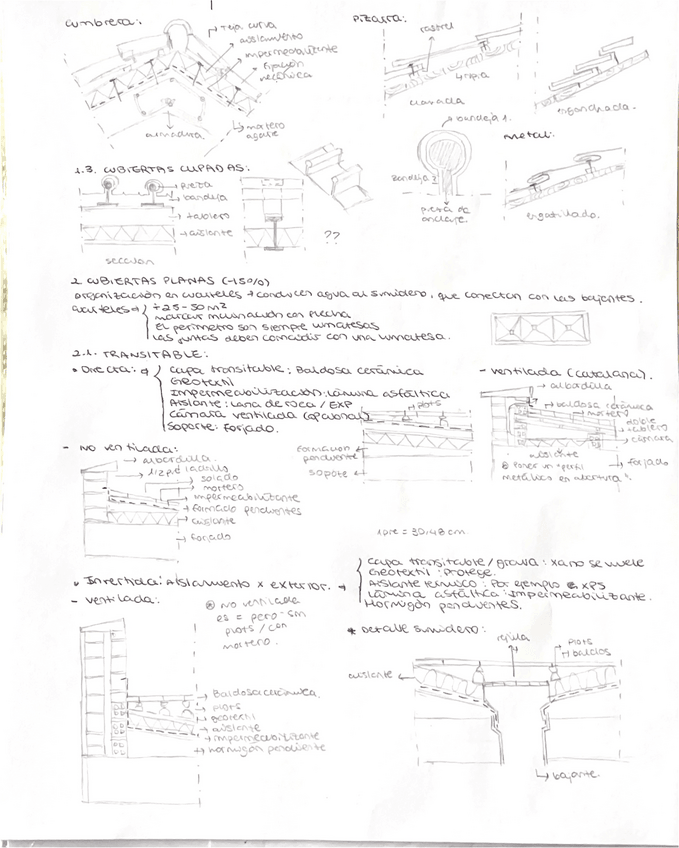 cumbrera:
teja curva
aislamiento
impermeabilizante
fijación
mecánica
armadura
mortero
agarre
Pizarra:
rastrel
ripia
clavada
enganchada.
bandeja 1.
bandeja 2
pieza de
anclaje.
Metal:
engatillado.
1.3. CUBIERTAS CUPADAS:
pieza
bandeja
tablero
aislante
sección
??
2. CUBIERTAS PLANAS (-15%)
organización en cuarteles → conducen agua al sumidero, que conectan con las bajantes.
cuarteles → ÷25-50m²
marcar inclinación con flecha
El perímetro son siempre limatesas
Las juntas deben coincidir con una limatesa.
2.1. TRANSITABLE:
• Directa: → Capa transitable: Baldosa cerámica
Geotextil
Impermeabilización: Lámina asfáltica
Aislante: Lana de roca / EXP
Cámara ventilada (opcional)
Soporte: Forjado.
plots
formación
pendiente
sopote
- ventilada (catalana).
albardilla
baldosa cerámica
mortero
doble
tablero
cámara
aislante
forjado
⊛ Poner un "perfil
metálico en abertura".
- No ventilada:
albardilla
1/2 pié ladrillo
solado
mortero
impermeabilizante
formado pendientes
aislante
forjado
1 pie = 30,48 cm.
• Invertida: Aislamiento x exterior. → Capa transitable / grava: xa no se vuele
Geotextil: Protege.
Aislante térmico: Por ejemplo XPS
Lámina asfáltica: Impermeabilizante.
Hormigón pendientes.
- Ventilada:
⊛ No ventilada
es = pero sin
plots / con
mortero.
Baldosa cerámica.
plots
geotextil
aislante
impermeabilizante
hormigón pendiente
* Detalle sumidero:
rejilla
Plots
aislante
bajante.